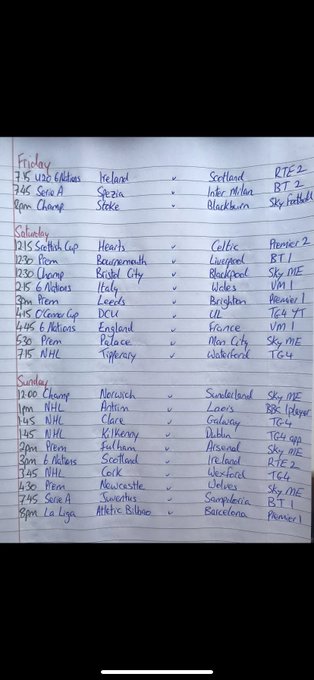 Friday
7.15 U20 6 Nations Ireland v Scotland RTE 2
7.45 Serie A Spezia v Inter Milan BT 2
8pm Champ Stoke v Blackburn Sky football
Saturday
12.15 Scottish Cup Hearts v Celtic Premier 2
12.30 Prem Bournemouth v Liverpool BT 1
12.30 Champ Bristol City v Blackpool Sky ME
2.15 6 Nations Italy v Wales VM 1
3pm Prem Leeds v Brighton Premier 1
4.15 O'Connor Cup DCU v UL TG4 YT
4.45 6 Nations England v France VM 1
5.30 Prem Palace v Man City Sky ME
7.15 NHL Tipperary v Waterford TG4
Sunday
12.00 Champ Norwich v Sunderland Sky ME
1pm NHL Antrim v Laois BBC iplayer
1.45 NHL Clare v Galway TG4
1.45 NHL Kilkenny v Dublin TG4 app
2pm Prem Fulham v Arsenal Sky ME
3pm 6 Nations Scotland v Ireland RTE 2
3.45 NHL Cork v Wexford TG4
4.30 Prem Newcastle v Wolves Sky ME
7.45 Serie A Juventus v Sampdoria BT 1
8pm La Liga Atletic Bilbao v Barcelona Premier 1